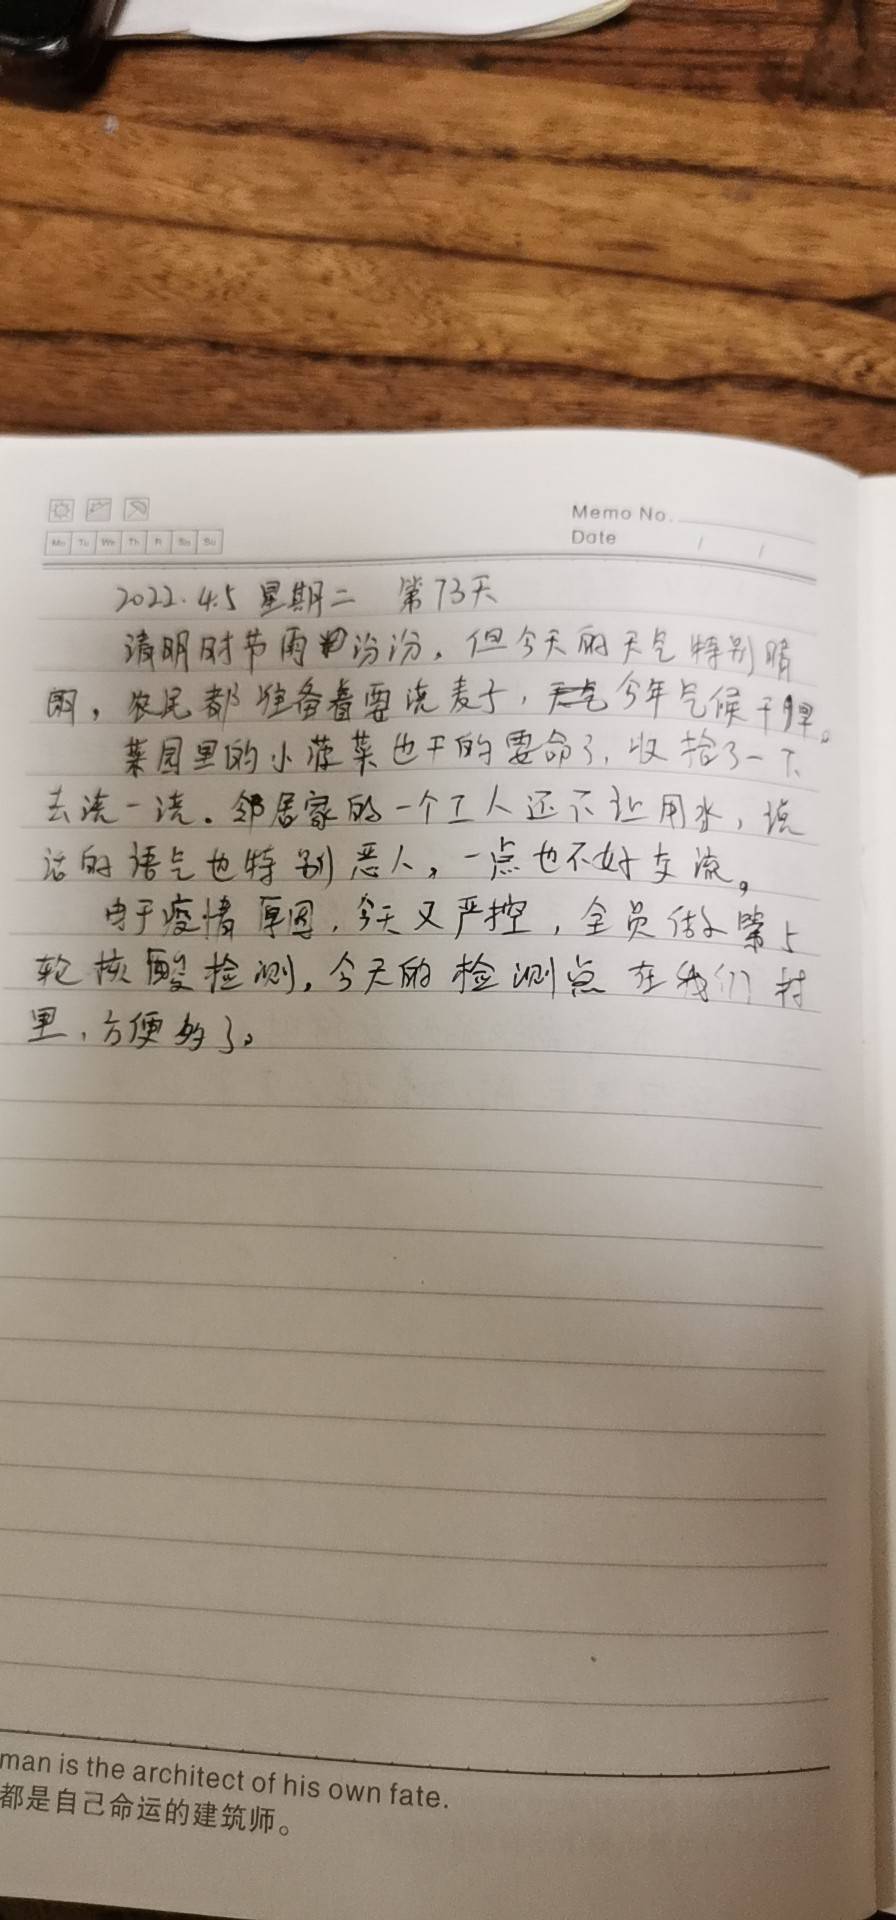 Memo No.
Mo Tu We Th Fr Sa Su
Date / /
2022.4.5 星期二 第73天
清明时节雨纷纷，但今天的天气特别晴
朗，农民都准备着要浇麦子，今年气候干旱。
菜园里的小菠菜也干的要命了，收拾了一下
去浇一浇。邻居家的一个工人还不让用水，说
话的语气也特别恶人，一点也不好交流。
由于疫情原因，今天又严控，全员做第5
轮核酸检测，今天的检测点在我们村
里，方便多了。
man is the architect of his own fate.
都是自己命运的建筑师。